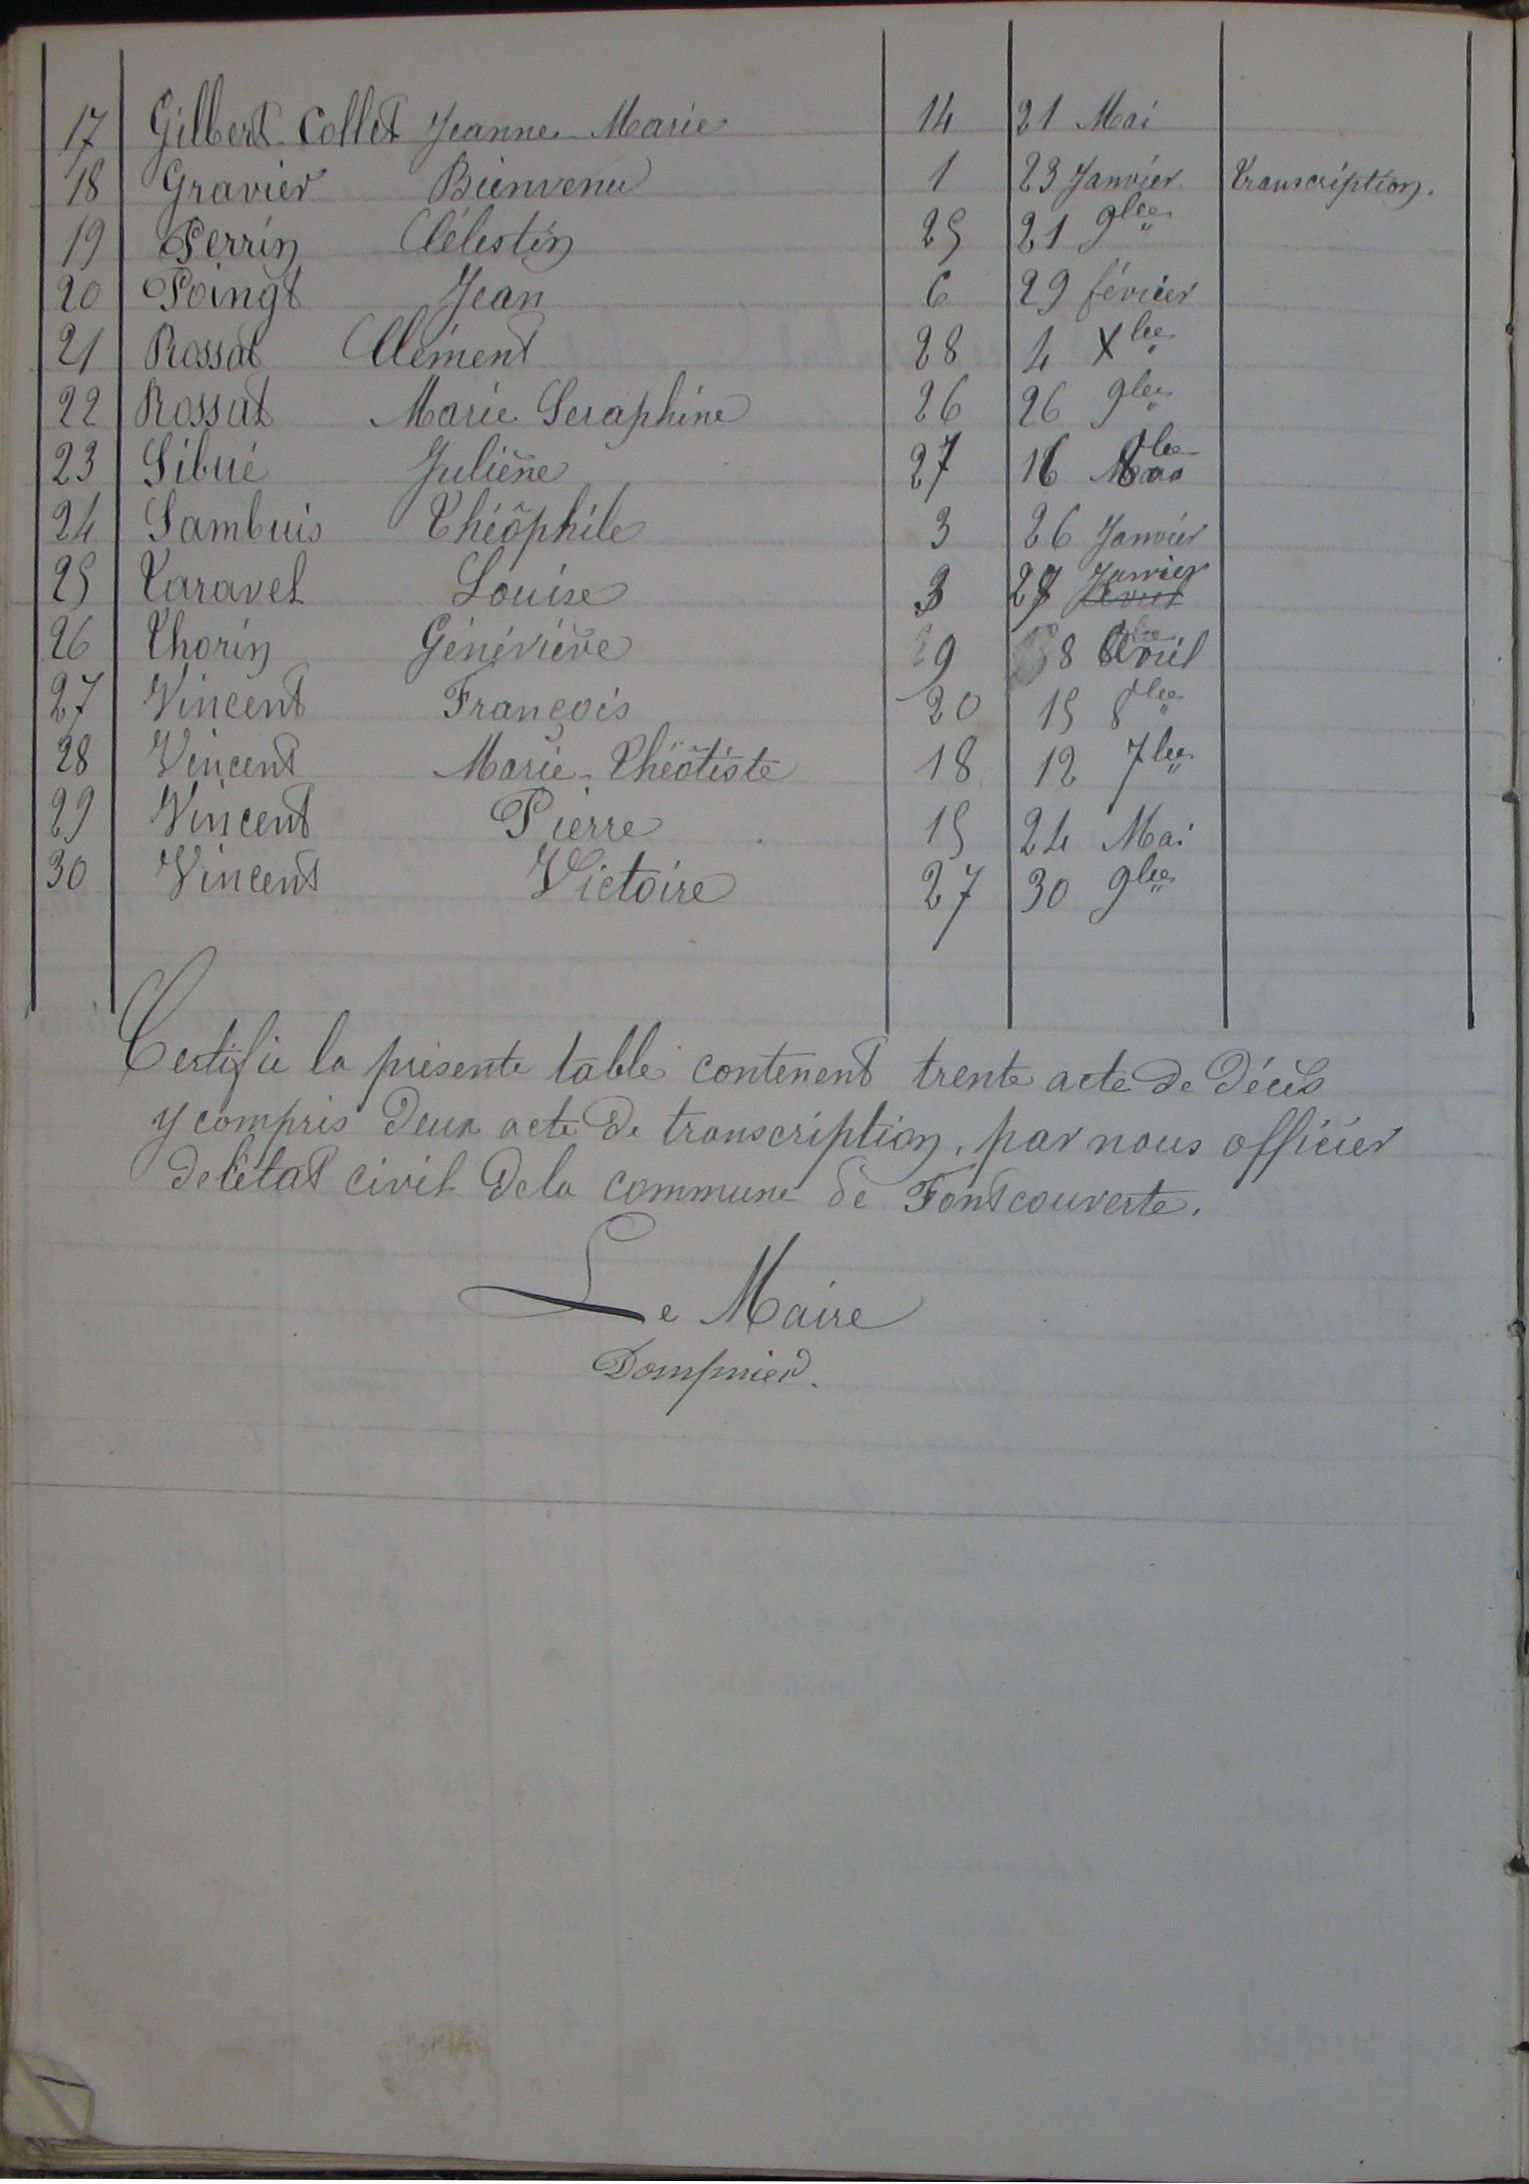 17 Gilbert-Collet Jeanne-Marie 14 21 Mai
18 Gravier Bienvenu 1 23 Janvier transcription.
19 Perrin Célestin 25 21 9bre
20 Poingt Jean 6 29 février
21 Rossat Clément 28 4 Xbre
22 Rossat Marie Seraphine 26 26 9bre
23 Sibué Juliène 27 16
24 Sambuis Théophile 3 26 Janvier
25 Taravel Louise 3 Janvier
26 Thorin Généviève 9 8
27 Vincent François 20 15 8bre
28 Vincent Marie-Théotiste 18 12 7bre
29 Vincent Pierre 15 24 Mai
30 Vincent Victoire 27 30 9bre
Certifie la présente table contenent trente acte de décès
y compris deux acte de transcription, par nous officier
de l'état civil de la commune de Fontcouverte.
Le Maire
Dompnier.